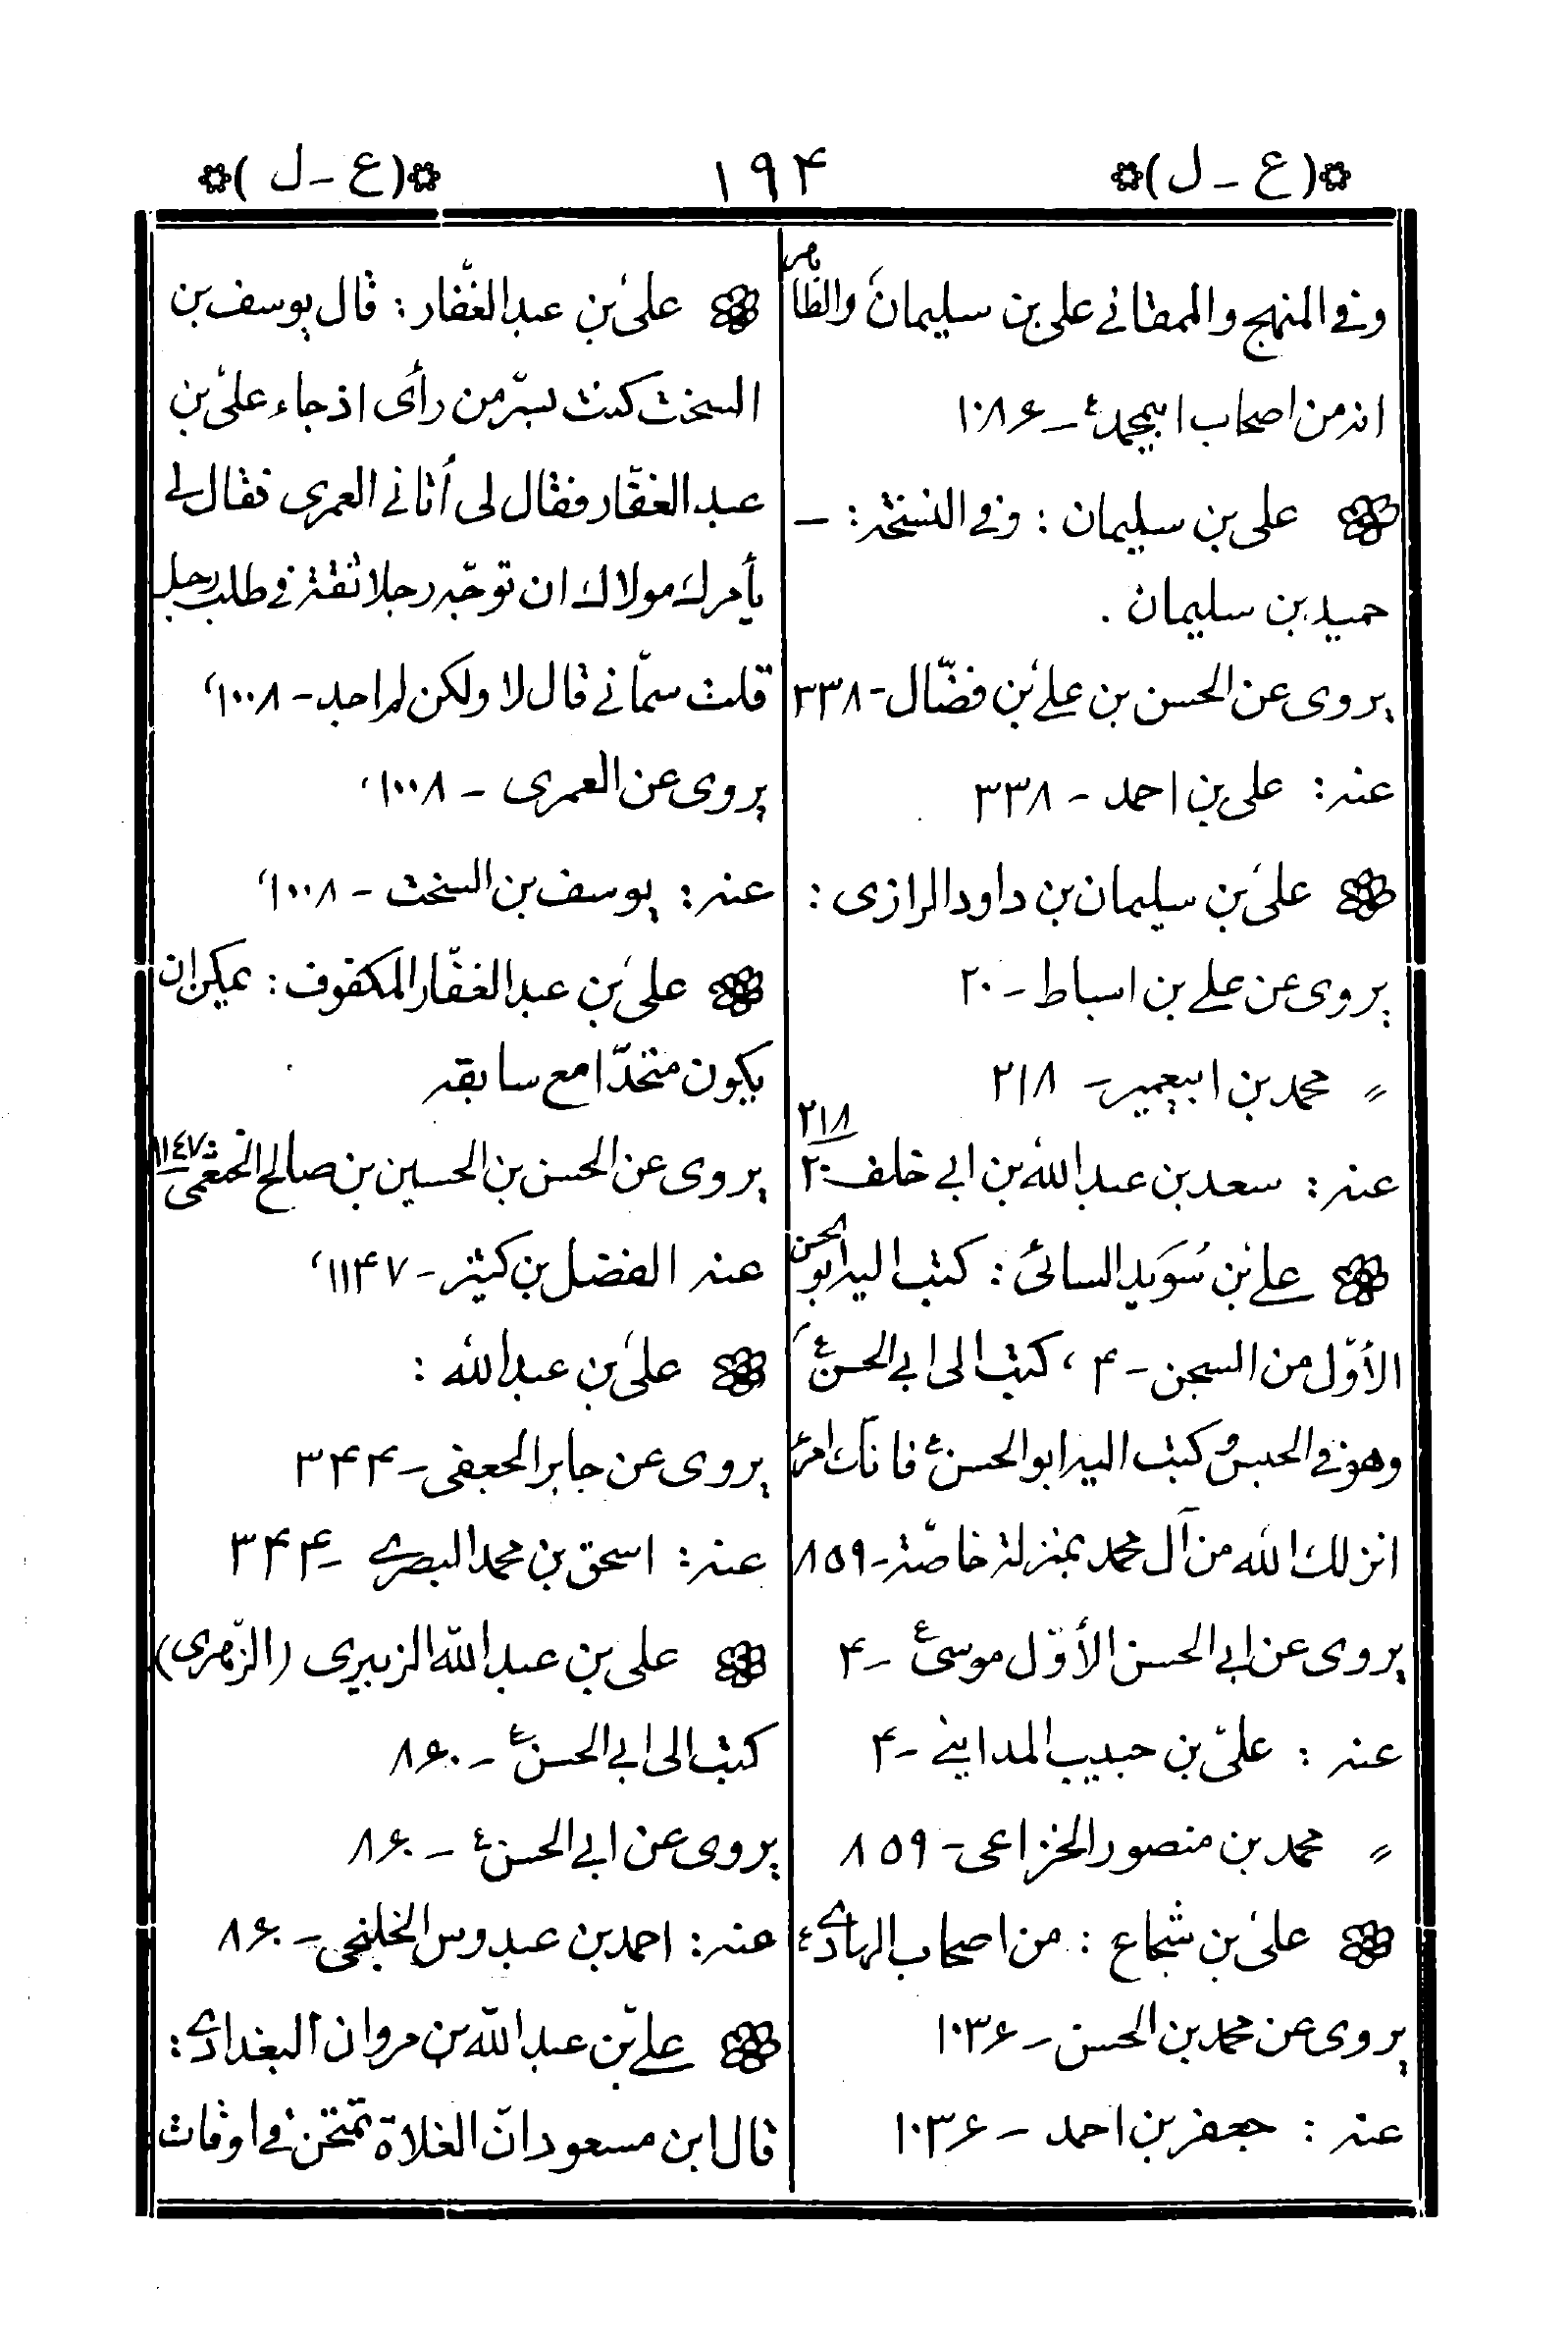 (ع - ل) ١٩۴ (ع - ل)
وفى المنهج والممقانى على بن سليمان والظاهر
انه من اصحاب ابيمحمد ع - ١٠٨۶
على بن سليمان : وفى النسخة : -
حميد بن سليمان .
يروى عن الحسن بن على بن فضّال - ٣٣٨
عنه : على بن احمد - ٣٣٨
على بن سليمان بن داود الرازى :
يروى عن على بن اسباط - ٢٠
〃 محمد بن ابيعمير - ٢١٨
٢١٨
عنه : سعد بن عبد الله بن ابى خلف - ٢٠
على بن سُوَيد السائى : كتب اليه ابو الحسن
الأوّل من السجن - ۴ ، كتب الى ابى الحسن ع
وهو فى الحبس و كتب اليه ابو الحسن ع فانك امرء
انزلك الله من آل محمد بمنزلة خاصّة - ٨۵٩
يروى عن ابى الحسن الأوّل موسى ع - ۴
عنه : علىّ بن حبيب المداينى - ۴
〃 محمد بن منصور الخزاعى - ٨۵٩
على بن شجاع : من اصحاب الهادى ع
يروى عن محمد بن الحسن - ١٠٣۶
عنه : جعفر بن احمد - ١٠٣۶
على بن عبد الغفّار : قال يوسف بن
السخت كنت بسرّ من رأى اذ جاء علىّ بن
عبد الغفّار فقال لى أتانى العمرى فقال لى
يأمرك مولاك ان توجّه رجلا ثقة فى طلب رجل
قلت سمّانى قال لا ولكن لم اجد - ١٠٠٨ ،
يروى عن العمرى - ١٠٠٨ ،
عنه : يوسف بن السخت - ١٠٠٨ ،
على بن عبد الغفّار المكفوف : يمكن ان
يكون متحدّا مع سابقه
يروى عن الحسن بن الحسين بن صالح الخثعمى - ١١٤٧
عنه الفضل بن كثير - ١١۴٧ ،
على بن عبد الله :
يروى عن جابر الجعفى - ٣۴۴
عنه : اسحق بن محمد البصرى - ٣۴۴
على بن عبد الله الزبيرى (الزّهرى)
كتب الى ابى الحسن ع - ٨۶٠
يروى عن ابى الحسن ع - ٨۶٠
عنه : احمد بن عبدوس الخلنجى - ٨۶٠
على بن عبد الله بن مروان البغدادى :
قال ابن مسعود انّ الغلاة تمتحن فى اوقات